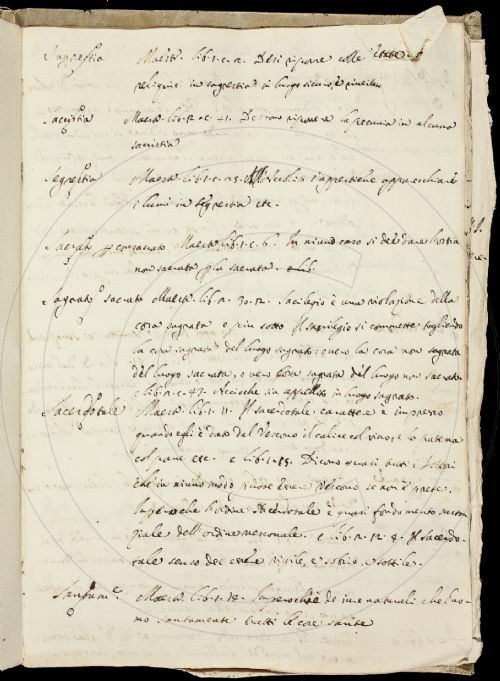 Sagrestia Maestr. lib. 1. c. 2. Desi riporre colle
reliquie in sagrestia in luogo sicuro, e
Sacristia Maestr. lib. 2. c. 41. riporre la pecunia in alcuna
sacristia
Segrestia Maestr. lib. 1. c. 25. s'appartiene apparecchiare
i lumi in segrestia etc.
Sacrato p consacrato Maestr. lib. 1. c. 6. In niuno caso si debb dare l'ostia
non sacrata p la sacrata.
Sagrato, sacrato Maestr. lib. 2. 30. 12. Sacrilegio è una violazione della
cosa sagrata e piu sotto Il sacrilegio si commette togliendo
la cosa sagrata del luogo sagrato: overo la cosa non sagrata
del luogo sacrato, overo cosa sagrata del luogo non sacrato
e lib. 2. c. 47. Accioche sia in luogo sagrato.
Sacerdotale Maestr. lib. 1. 11. Il sacerdotale carattere è impresso
quando egli è dato dal Vescovo il calice col vino, e la patena
col pane etc. e lib. 1. 15. Dicono quasi tutti i Dottori
che in niuno modo puote essere Vescovo se non è prete
Imperochè l'ordine sacerdotale è quasi fondamento
dell'ordine vescovale. e lib. 2. 12. 9. Il sacerdo-
tale senso dee essere vigile, e sobrio, e sottile.
Maestr. lib. 1. 18. Imperochè de iure naturali che l'uo-
mo santamente tratti le cose sante